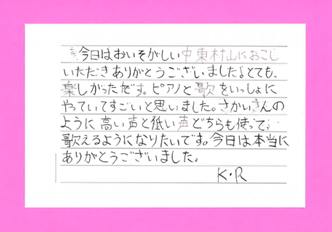 今日はおいそがしい中東村山におこし
いただきありがとうございました。とても、
楽しかったです。ピアノと歌をいっしょに
やっていてすごいと思いました。さかいさんの
ように高い声と低い声どちらも使って、
歌えるようになりたいです。今日は本当に
ありがとうございました。
K・R